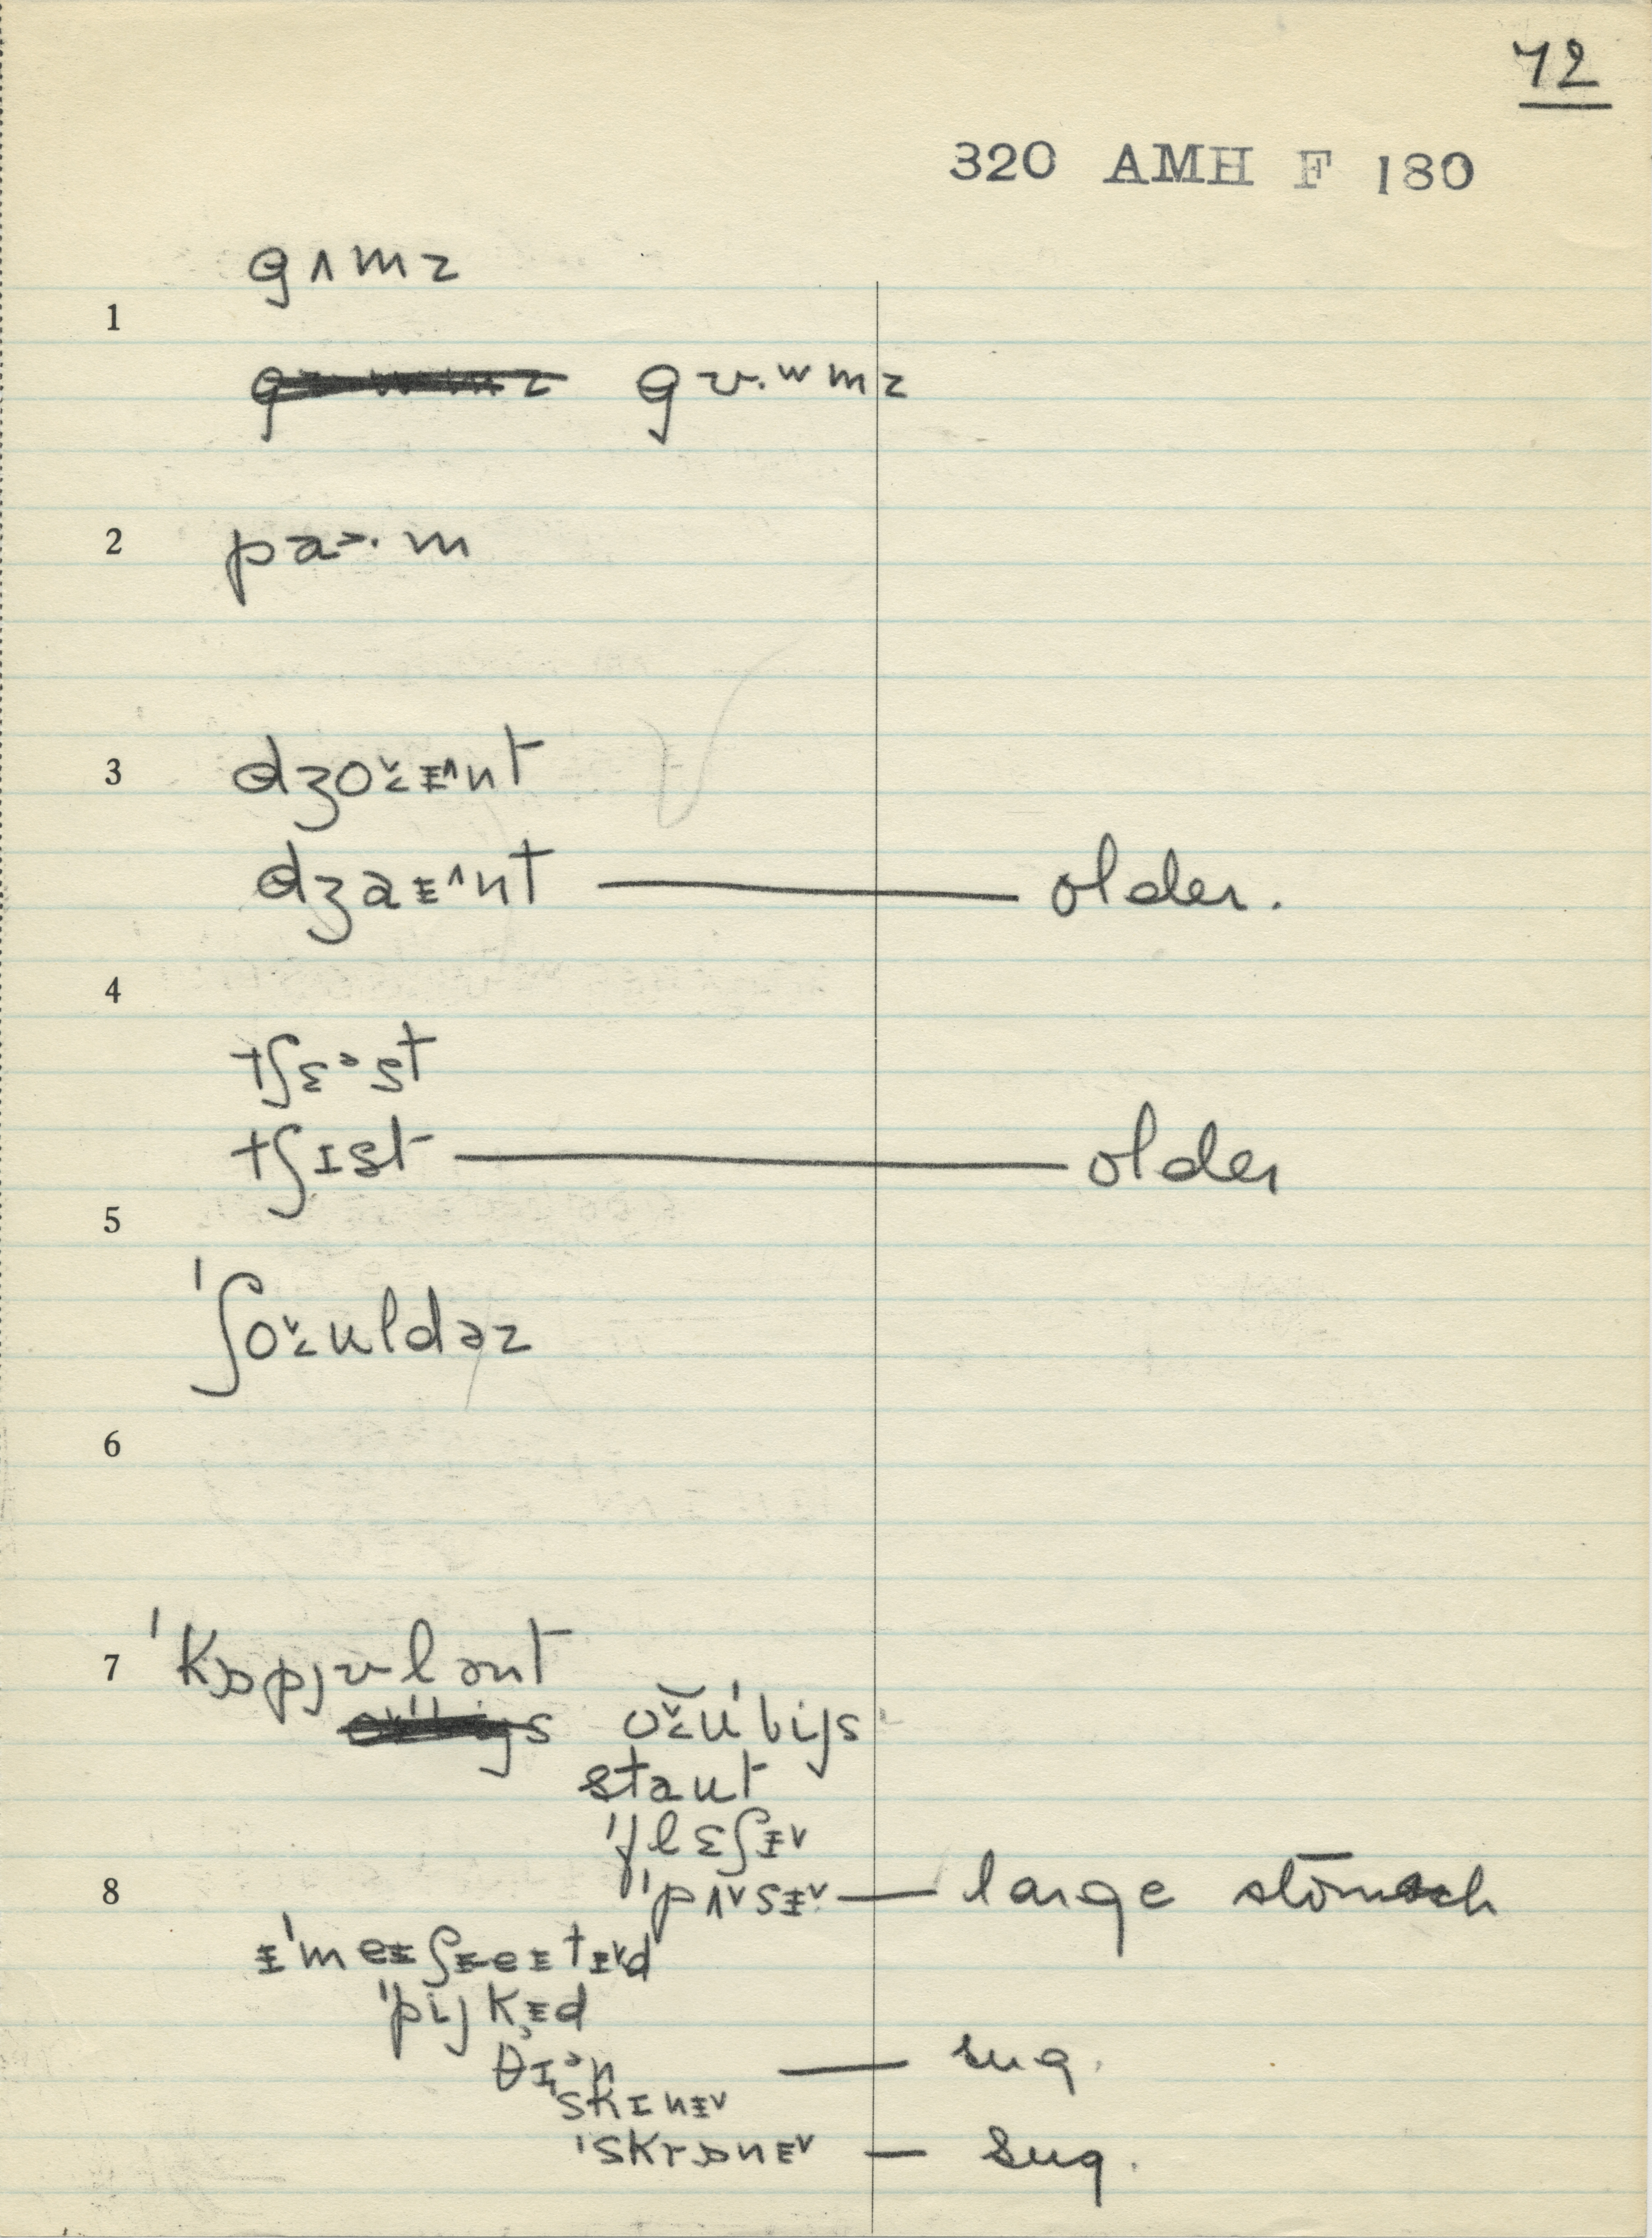 72
320 AMH F 180
gʌmz
1
gʊ.ʷmz
2 pa>.m
3 dʒoᵛɛᵻ^nt
dʒaᵻ^nt — older.
4
tʃɛᵊst
tʃɪst — older
5
ˈʃoᵛɛʊldəz
6
7 ˈkɒpjʊlənt
oᵛɛʊˈbijs
staut
ˈflɛʃᵻᵛ
8 ˈpʌᵛsᵻᵛ — large stomach
ᵻˈmeᵻʃᵻeᵻtᵻᵛd
ˈpijkᵻd
θɪᵊn — sug.
skɪnᵻᵛ
ˈskrɒnᵻᵛ — sug.